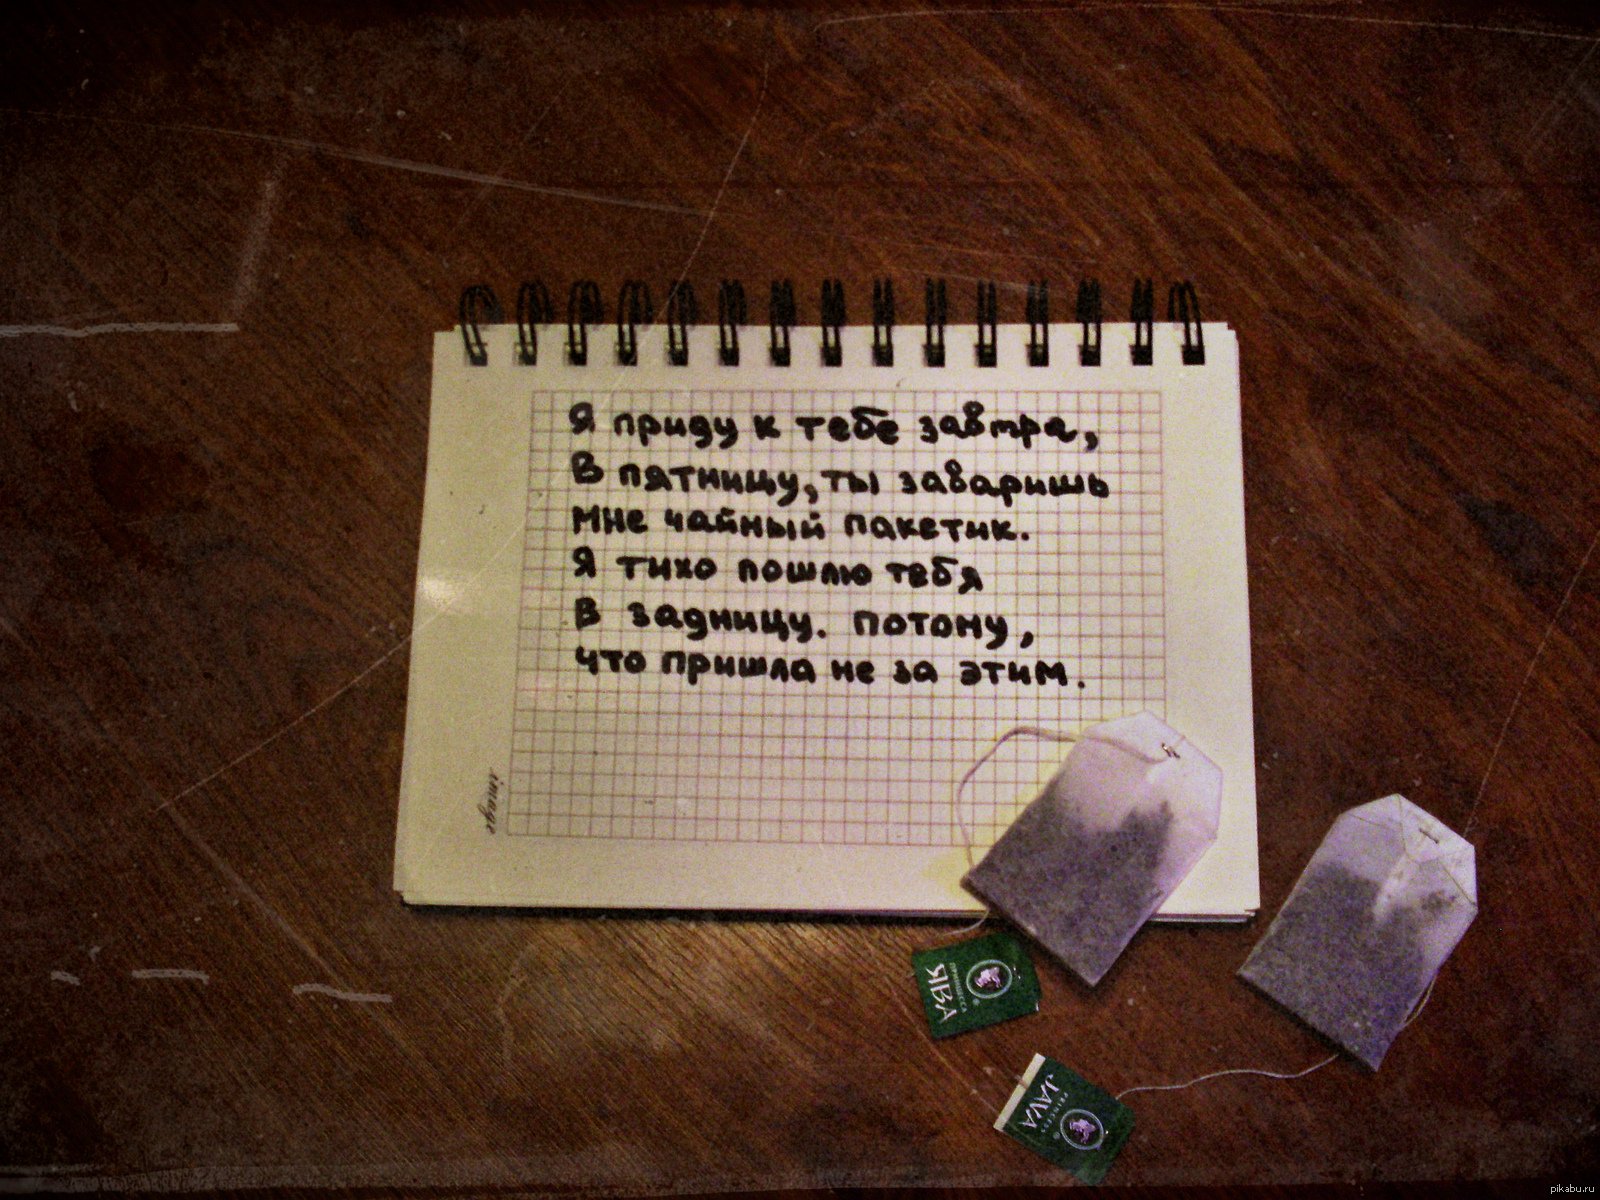 Я приду к тебе завтра,
В пятницу, ты заваришь
мне чайный пакетик.
Я тихо пошлю тебя
В задницу. потому,
что пришла не за этим.
image
ПРИНЦЕССА
ЯВА
PRINCESS
JAVA
pikabu.ru